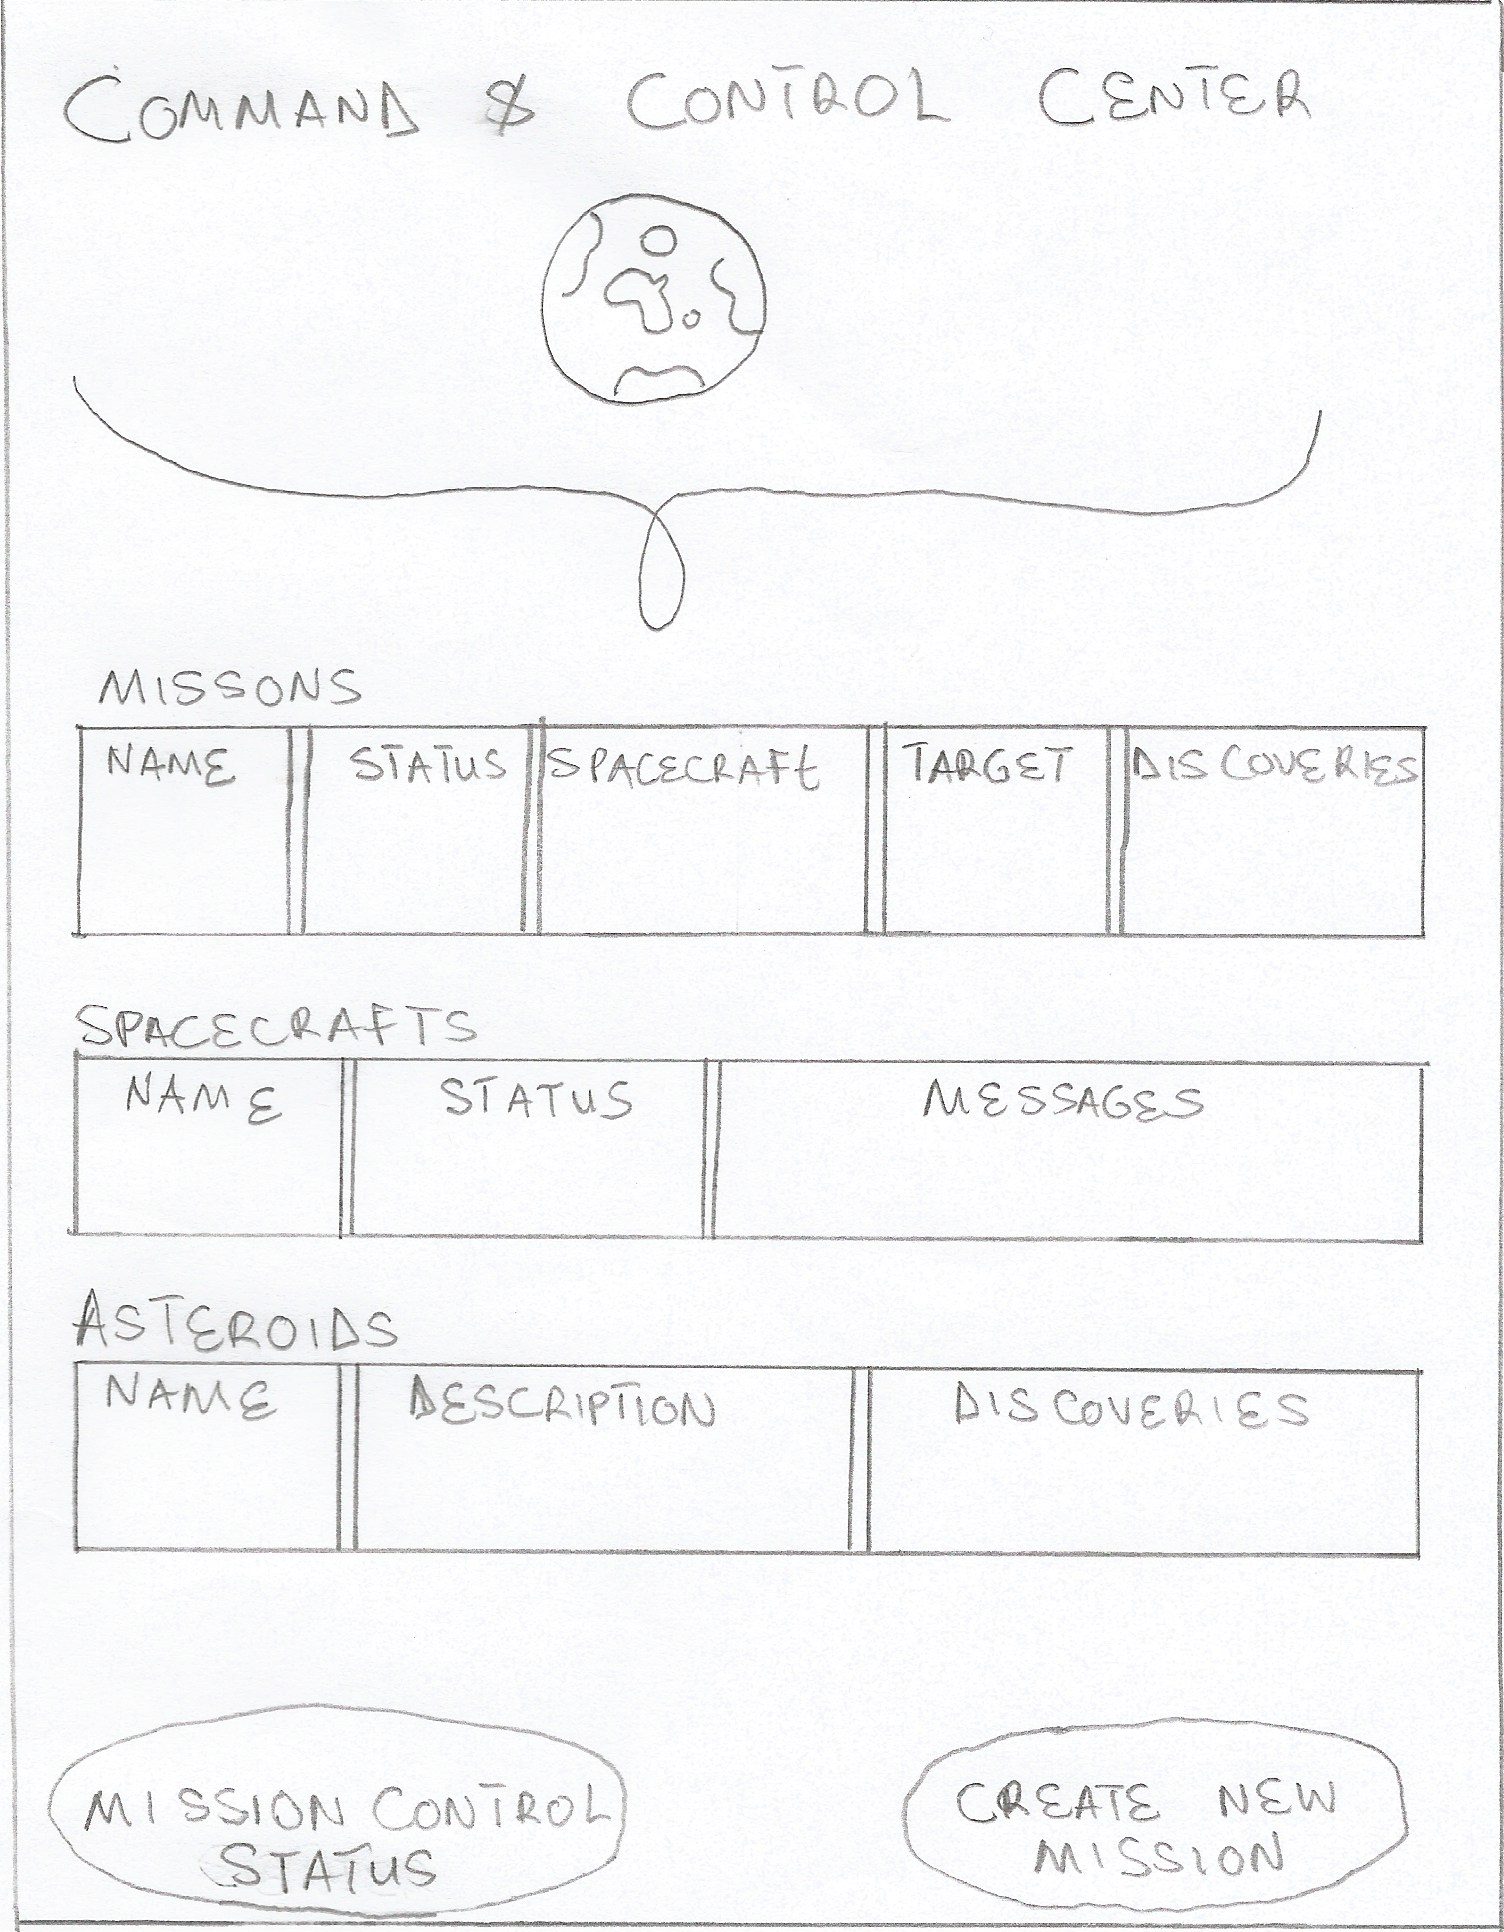 COMMAND & CONTROL CENTER
MISSONS
NAME STATUS SPACECRAFt TARGET DISCOVERIES
SPACECRAFTS
NAME STATUS MESSAGES
ASTEROIDS
NAME DESCRIPTION DISCOVERIES
MISSION CONTROL
STATUS
CREATE NEW
MISSION